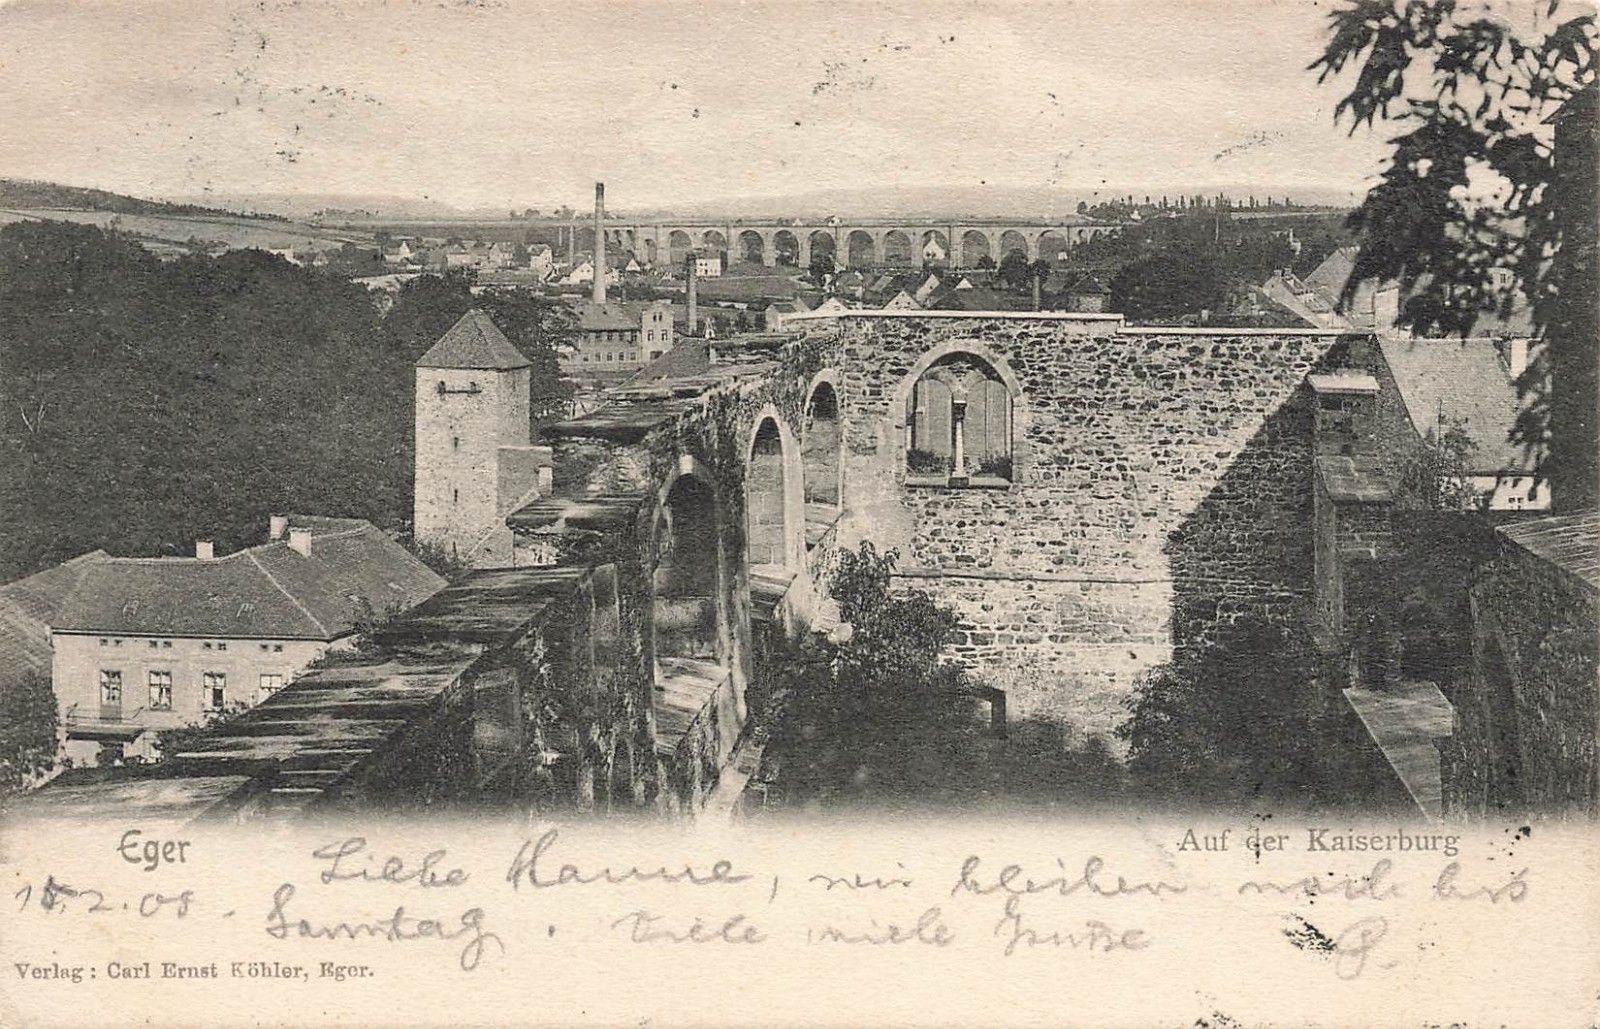 Eger
Auf der Kaiserburg
Liebe Hanne, wir bleiben noch bis
15.2.05.
Sonntag. Viele viele Grüße
Verlag: Carl Ernst Köhler, Eger.